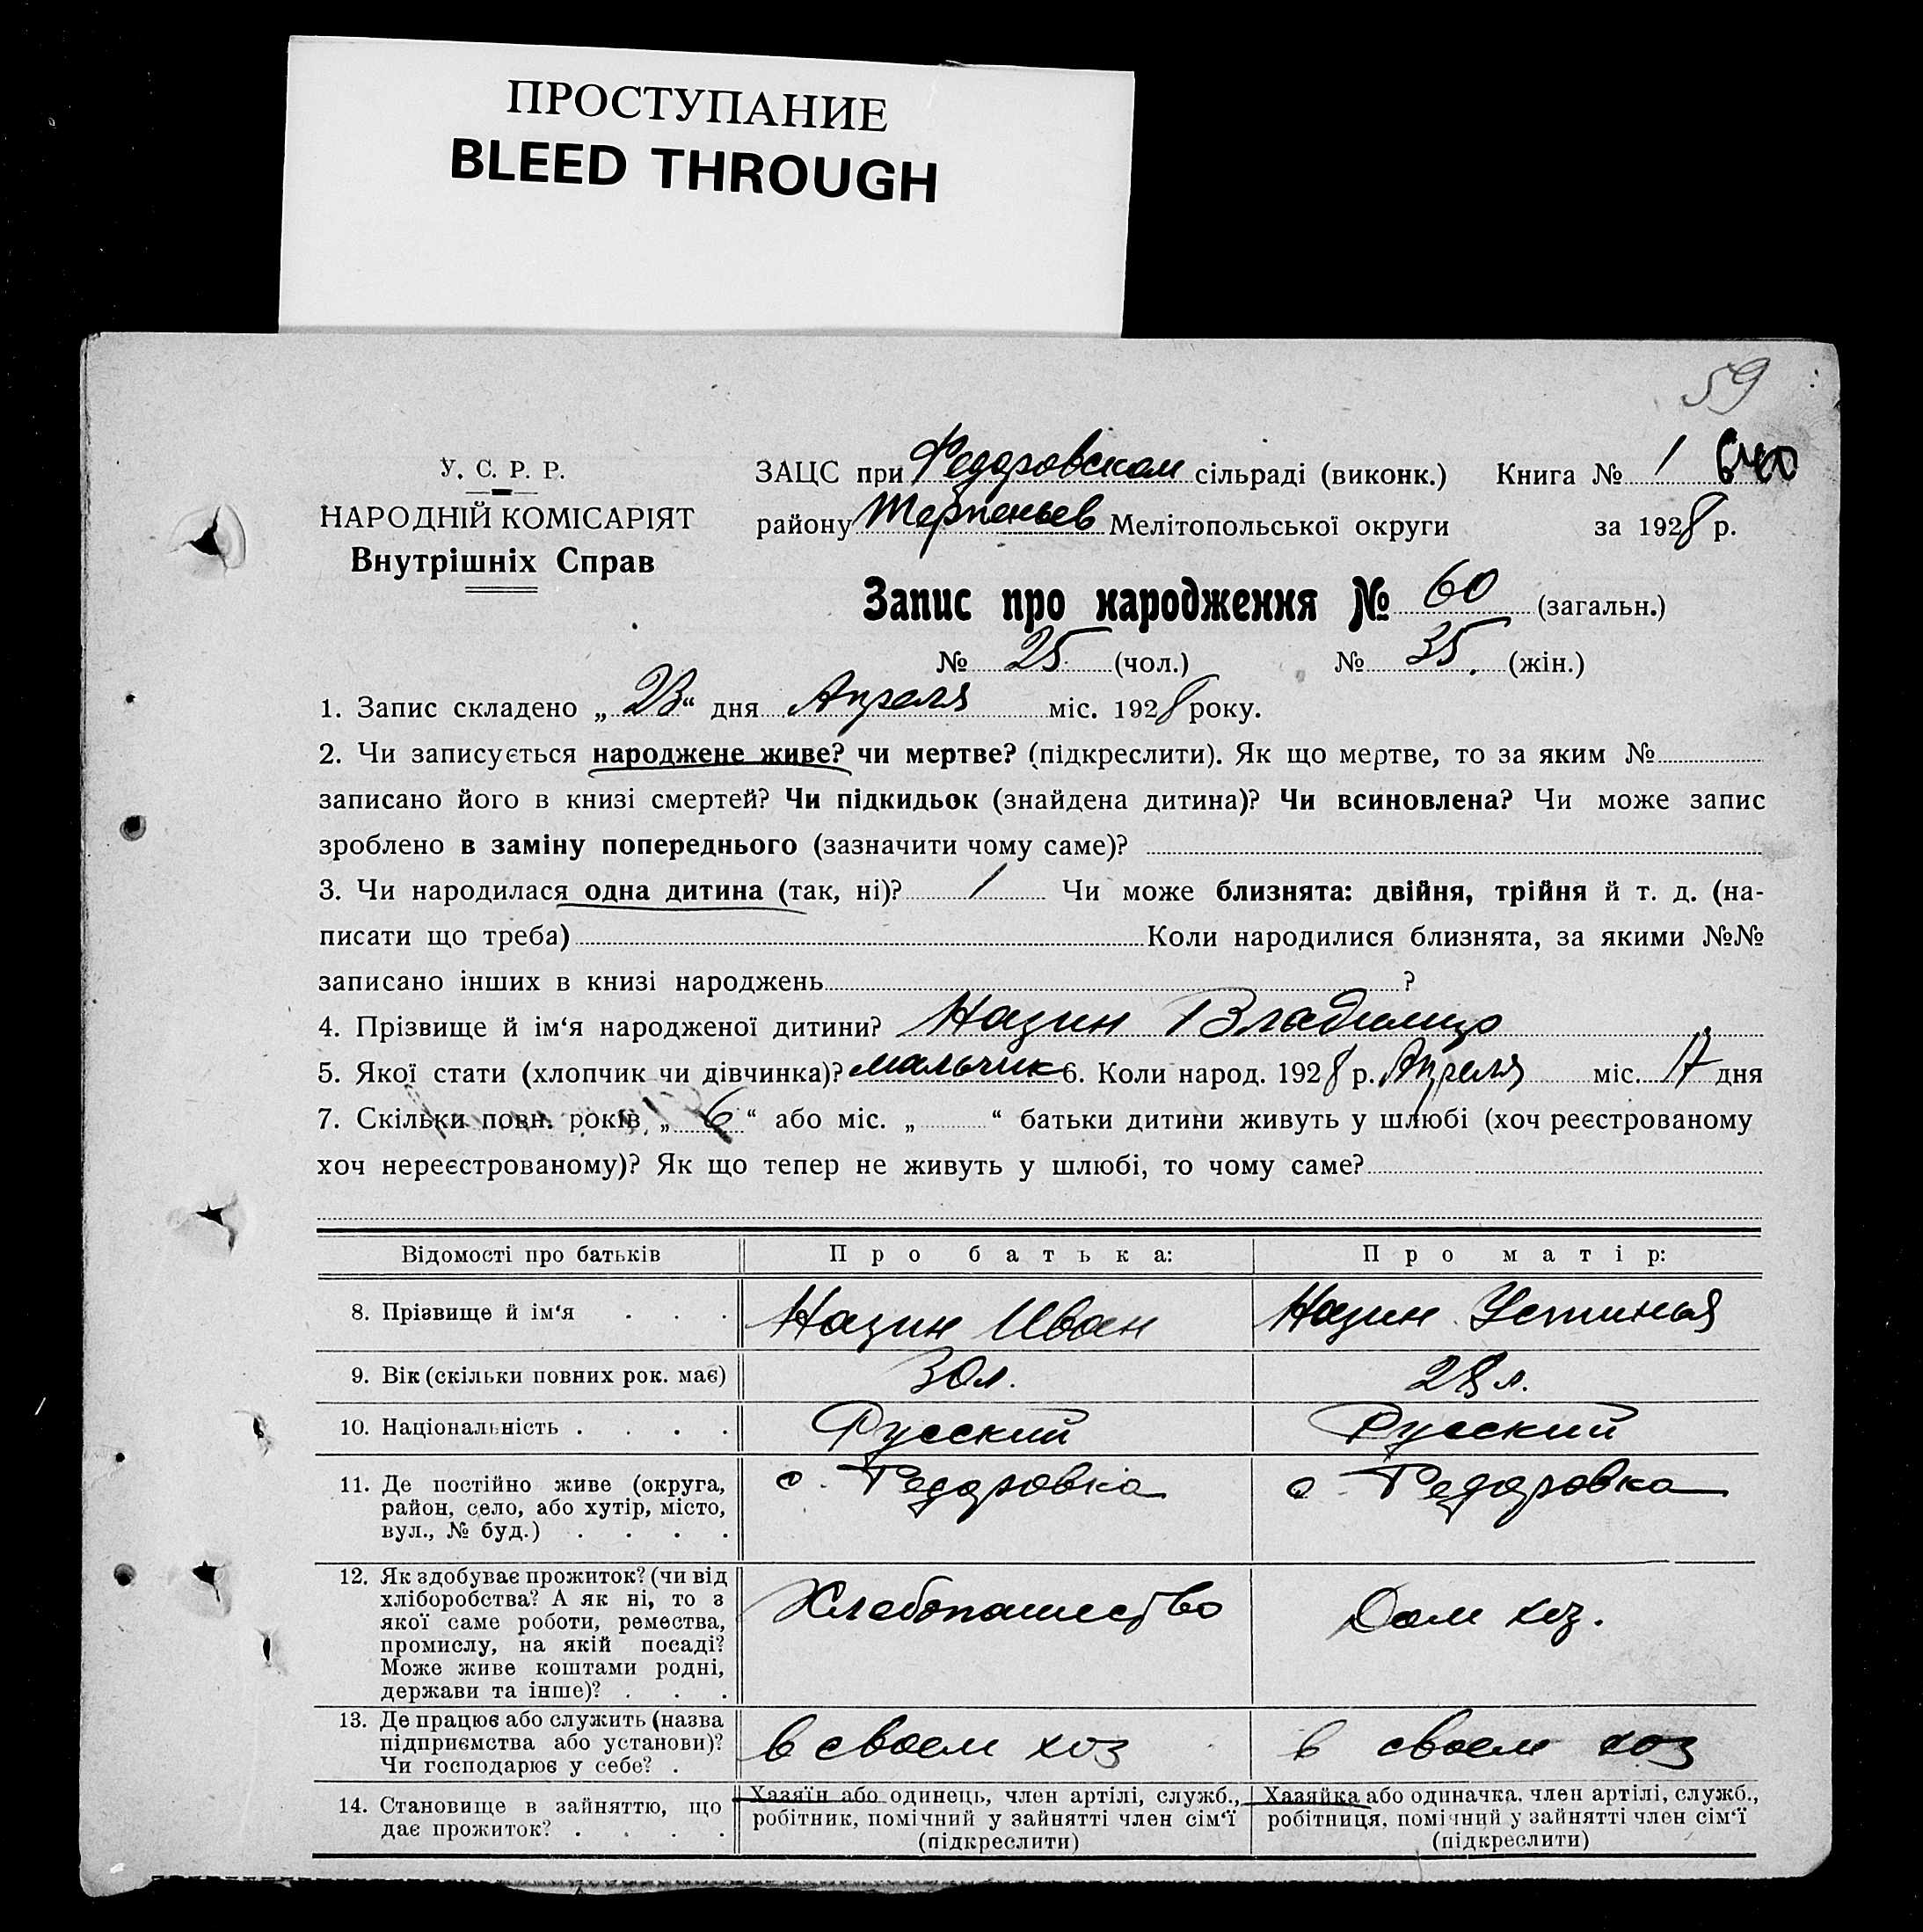 ПРОСТУПАНИЕ
BLEED THROUGH
59
У. С. Р. Р.
НАРОДНІЙ КОМІСАРІЯТ
Внутрішніх Справ
ЗАЦС при Федоровском сільраді (виконк.) Книга № 1
району Терпеньев Мелітопольської округи за 1928 р.
Запис про народження № 60 (загальн.)
№ 25 (чол.) № 35. (жін.)
1. Запис складено „23“ дня Апреля міс. 1928 року.
2. Чи записується народжене живе? чи мертве? (підкреслити). Як що мертве, то за яким №
записано його в книзі смертей? Чи підкидьок (знайдена дитина)? Чи всиновлена? Чи може запис
зроблено в заміну попереднього (зазначити чому саме)?
3. Чи народилася одна дитина (так, ні)? 1 Чи може близнята: двійня, трійня й т. д. (на-
писати що треба) Коли народилися близнята, за якими №№
записано інших в книзі народжень ?
4. Прізвище й ім‘я народженої дитини? Назин Владимир
5. Якої стати (хлопчик чи дівчинка)? мальчик 6. Коли народ. 1928 р. Апреля міс. 17 дня
7. Скільки повн. років „6“ або міс. „ “ батьки дитини живуть у шлюбі (хоч реєстрованому
хоч нереєстрованому)? Як що тепер не живуть у шлюбі, то чому саме?
Відомості про батьків Про батька: Про матір:
8. Прізвище й ім‘я . . . Назин Иван Назин Устинья
9. Вік (скільки повних рок. має) 30 л. 28 л.
10. Національність . . . . Русский Русский
11. Де постійно живе (округа,
район, село, або хутір, місто,
вул., № буд.) . . . .
с. Федоровка с. Федоровка
12. Як здобуває прожиток? (чи від
хліборобства? А як ні, то з
якої саме роботи, ремества,
промислу, на якій посаді?
Може живе коштами родні,
держави та інше)? . . .
Хлебопашество Дом хоз.
13. Де працює або служить (назва
підприємства або установи)?
Чи господарює у себе? .
в своем хоз в своем хоз
14. Становище в зайняттю, що
дає прожиток? . . . .
Хазяїн або одинець, член артілі, служб.,
робітник, помічний у зайнятті член сім‘ї
(підкреслити)
Хазяйка або одиначка. член артілі, служб.,
робітниця, помічний у зайнятті член сім‘ї
(підкреслити)